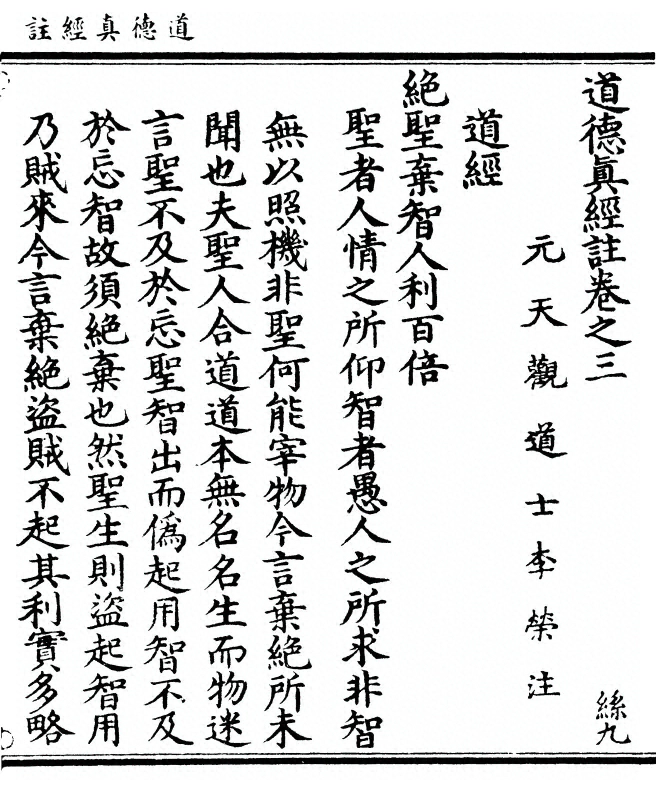 道德真經註
道德眞經註卷之三
絲九
元天觀道士李榮注
道經
絕聖棄智人利百倍
聖者人情之所仰智者愚人之所求非智
無以照機非聖何能宰物今言棄絕所未
聞也夫聖人合道道本無名名生而物迷
言聖不及於忘聖智出而偽起用智不及
於忘智故須絕棄也然聖生則盜起智用
乃賊來今言棄絕盜賊不起其利實多略